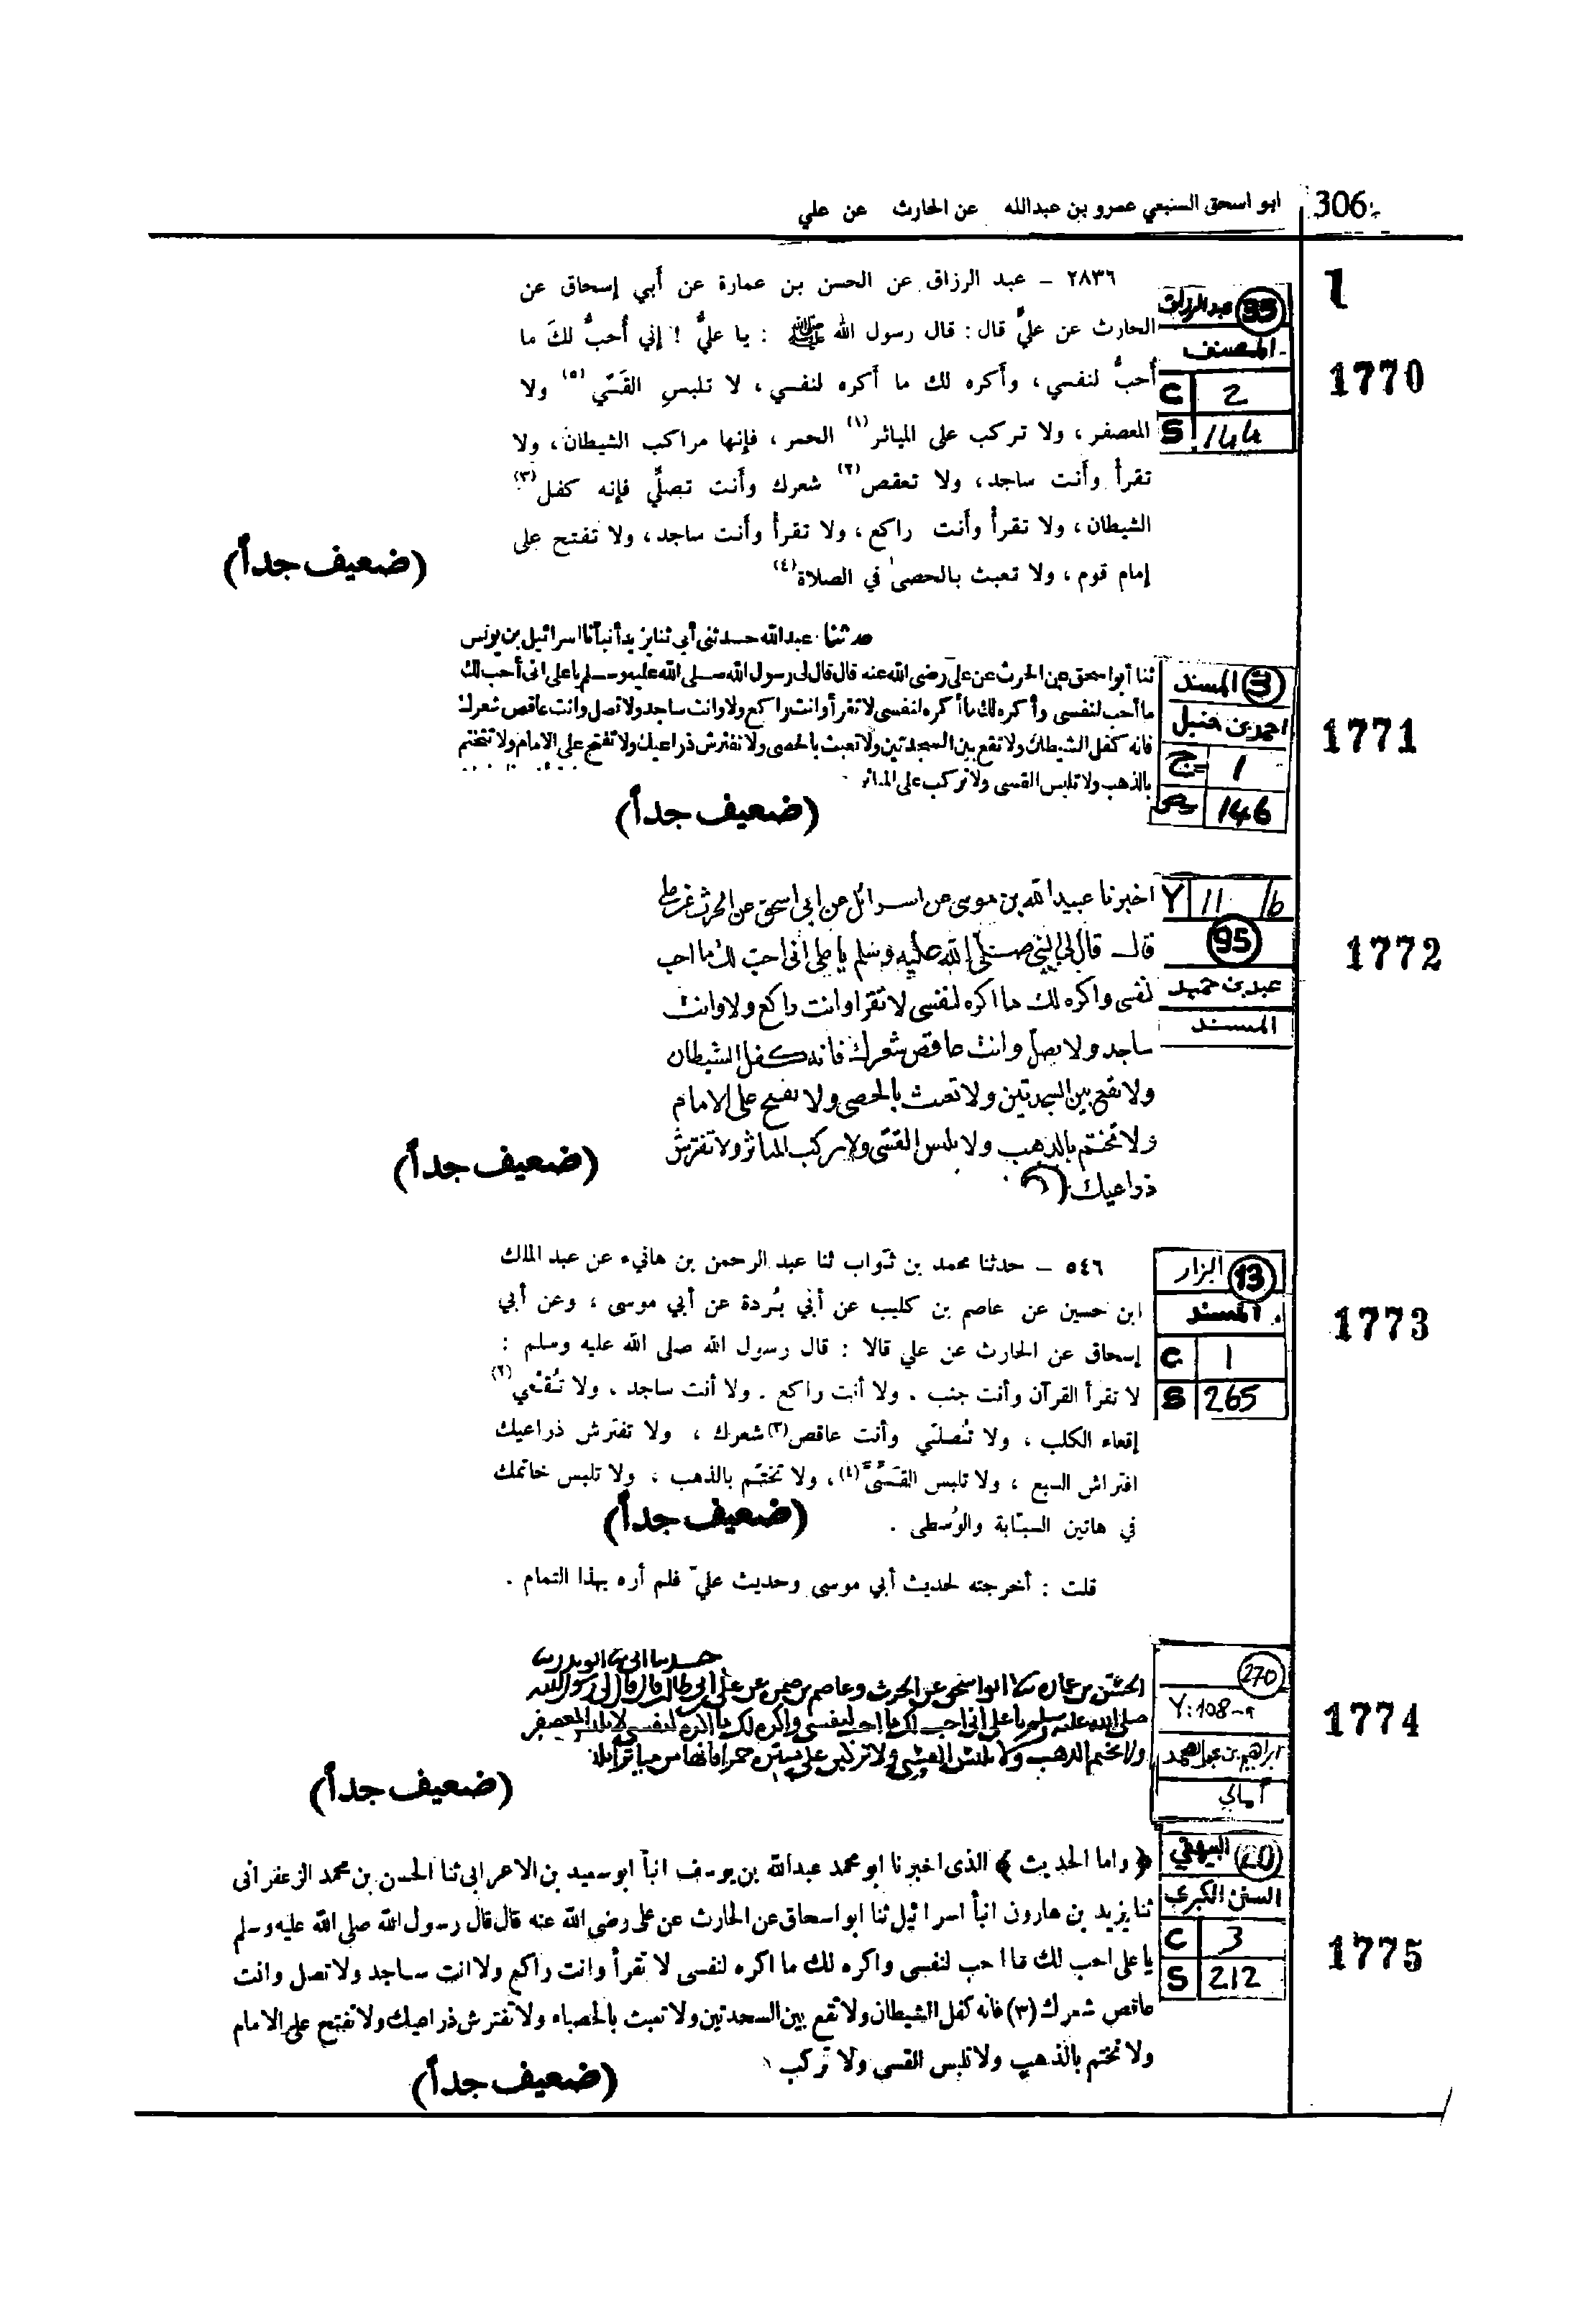 306
ابو اسحق السبيعي عمرو بن عبدالله عن الحارث عن علي
1
1770
33 عبدالرزاق
المصنف
C 2
S 144
٢٨٣٦ – عبد الرزاق عن الحسن بن عمارة عن أبي إسحاق عن
الحارث عن عليّ قال : قال رسول الله ﷺ : يا عليُّ ! إني أُحبُّ لكَ ما
أُحبُّ لنفسي ، وأكره لك ما أكره لنفسي ، لا تلبسِ القَسّي (٥) ولا
المعصفر ، ولا تركب على المياثر (١) الحمر ، فإنها مراكب الشيطان ، ولا
تقرأ وأنت ساجد ، ولا تعقص (٢) شعرك وأنت تصلّي فإنه كفل (٣)
الشيطان ، ولا تقرأ وأنت راكع ، ولا تقرأ وأنت ساجد ، ولا تفتح على
إمام قوم ، ولا تعبث بالحصى في الصلاة (٤)
(ضعيف جداً)
1771
3 المسند
احمد بن حنبل
ج 1
ص 146
حدثنا عبدالله حدثني أبي ثنا يزيد أنبأنا اسرائيل بن يونس
ثنا أبو اسحق عن الحرث عن علي رضى الله عنه قال قال لى رسول الله صلى الله عليه وسلم يا على انى أحب لك
ما أحب لنفسى وأكره لك ما أكره لنفسى لا تقرأ وانت راكع ولا وانت ساجد ولا تصل وانت عاقص شعرك
فانه كفل الشيطان ولا تقع بين السجدتين ولا تعبث بالحصى ولا تفترش ذراعيك ولا تفتح على الامام ولا تتختم
بالذهب ولا تلبس القسى ولا تركب على المياثر
(ضعيف جداً)
1772
Y 11 /b
95
عبد بن حميد
المسند
اخبرنا عبيد الله بن موسى عن اسرائل عن ابي اسحق عن الحرث عن علي
قال قال لي النبي صلى الله عليه وسلم يا علي اني احب لك ما احب
لنفسي واكره لك ما اكره لنفسي لا تقرا وانت راكع ولا وانت
ساجد ولا تصل وانت عاقص شعرك فانه كفل الشيطان
ولا تقع بين السجدتين ولا تعبث بالحصى ولا تفتح على الامام
ولا تختم بالذهب ولا تلبس القسي ولا تركب المياثر ولا تفترش
ذراعيك
(ضعيف جداً)
1773
13 البزار
المسند
C 1
S 265
٥٤٦ – حدثنا محمد بن ثواب ثنا عبد الرحمن بن هانىء عن عبد الملك
ابن حسين عن عاصم بن كليب عن أبي بُردة عن أبي موسى ، وعن أبي
إسحاق عن الحارث عن علي قالا : قال رسول الله صلى الله عليه وسلم :
لا تقرأ القرآن وأنت جنب ، ولا أنت راكع ، ولا أنت ساجد ، ولا تُقْعي (٢)
إقعاء الكلب ، ولا تُصلّي وأنت عاقص (٣) شعرك ، ولا تفترش ذراعيك
افتراش السبع ، ولا تلبس القَسّيّ (٤) ، ولا تختّم بالذهب ، ولا تلبس خاتمك
في هاتين السبّابة والوُسطى .
(ضعيف جداً)
قلت : أخرجته لحديث أبي موسى وحديث عليّ فلم أره بهذا التمام .
1774
270
Y:108-a
ابراهيم بن عبد الصمد
أمالي
الحسن بن عماره ثنا ابو اسحق عن الحرث وعاصم بن ضمره عن علي بن ابي طالب قال قال لي رسول الله
صلى الله عليه وسلم يا على انى احب لك ما احب لنفسي واكره لك ما اكره لنفسي لا تلبس المعصفر
ولا تختم بالذهب ولا تلبس القسي ولا تركبن على ميثره حمرا فانها من مياثر
(ضعيف جداً)
1775
20 البيهقي
السنن الكبرى
C 3
S 212
﴿ واما الحديث ﴾ الذى اخبرنا ابو محمد عبدالله بن يوسف انبأ ابو سعيد بن الاعرابى ثنا الحسن بن محمد الزعفرانى
ثنا يزيد بن هارون انبأ اسرائيل ثنا ابو اسحاق عن الحارث عن على رضى الله عنه قال قال رسول الله صلى الله عليه وسلم
يا على احب لك ما احب لنفسى واكره لك ما اكره لنفسى لا تقرأ وانت راكع ولا انت ساجد ولا تصل وانت
عاقص شعرك (٣) فانه كفل الشيطان ولا تقع بين السجدتين ولا تعبث بالحصباء ولا تفترش ذراعيك ولا تفتح على الامام
ولا تختم بالذهب ولا تلبس القسى ولا تركب
(ضعيف جداً)